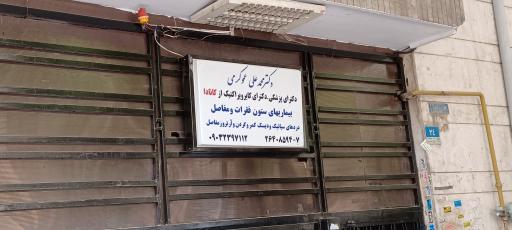 دکتر محمد علی عوکرمی
دکترای پزشکی دکترای کایروپراکتیک از کانادا
بیماریهای ستون فقرات و مفاصل
دردهای سیاتیک ودیسک کمر وگردن وآرتروز مفاصل
۰۹۰۳۲۳۹۷۱۱۲ ۲۶۴۰۸۵۹۴۰۷
۲۴